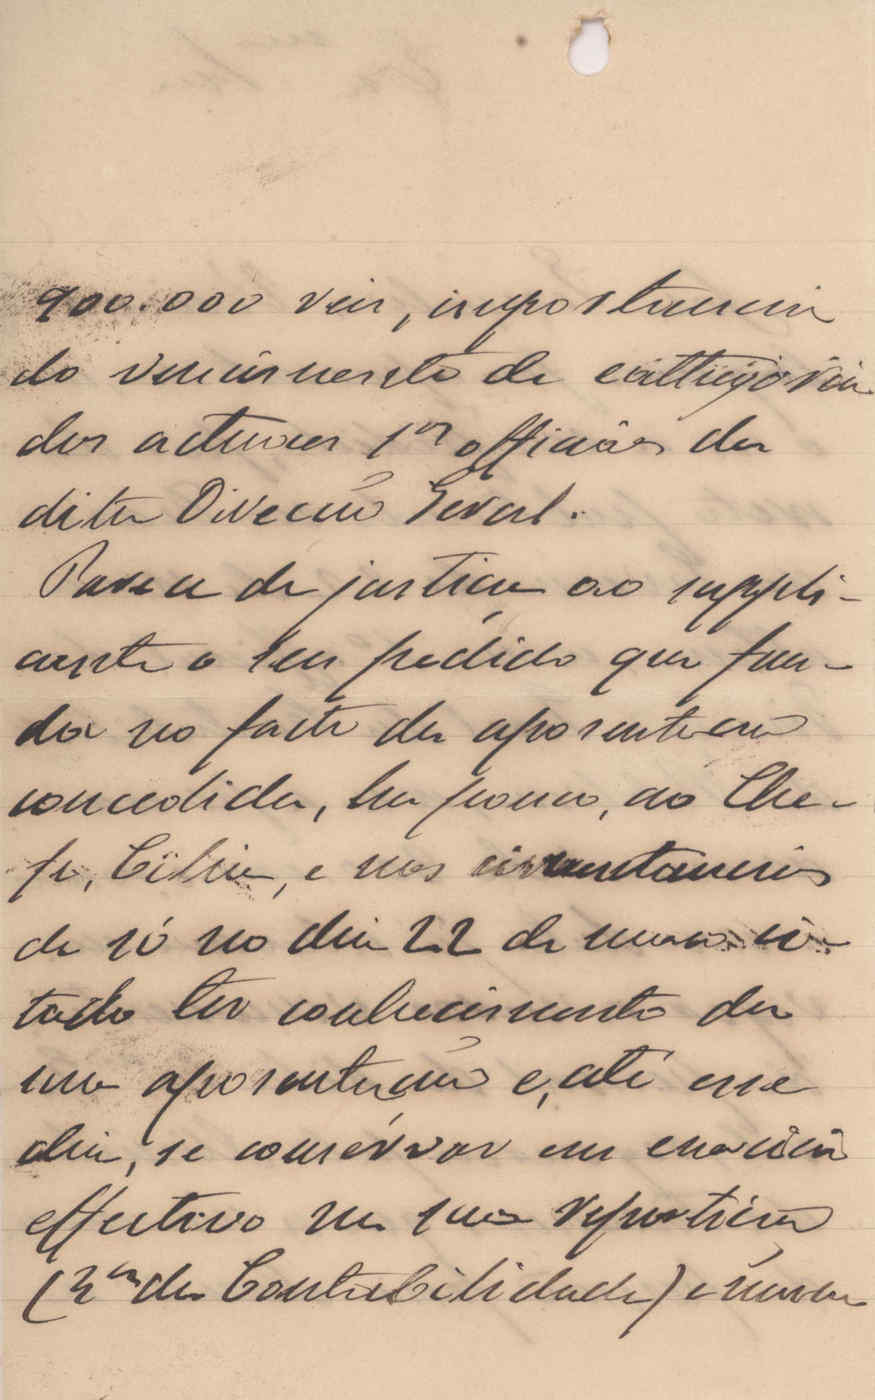 900.000 reis, importancia
do vencimento de cathegoria
dos actuaes 1os officiaes da
dita Direcção Geral.
Parece de justiça ao suppli-
cante o seu pedido que fun-
da no facto da aposentação
concedida, ha pouco, ao Che-
fe, Cilia, e nas circunstancias
de só no dia 22 de março ci-
tado ter conhecimento da
sua aposentação e, até esse
dia, se conservar em exercicio
effectivo na sua repartição
da Contabilidade) e